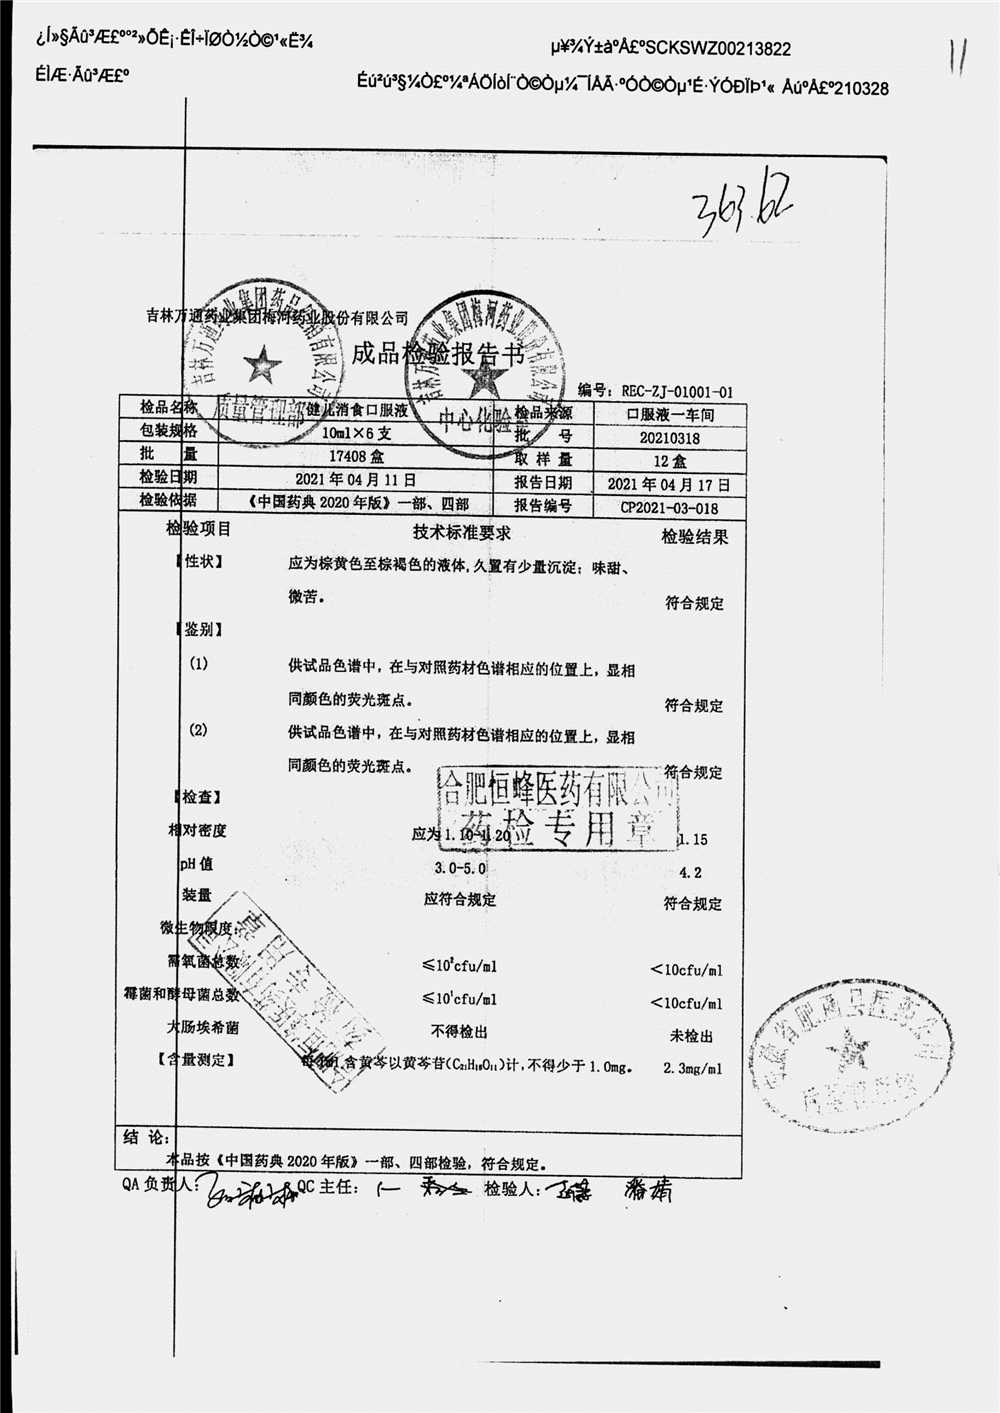 ¿Í»§Ãû³Æ£º°²»ÕÊ¡·ÊÎ÷ÏØÒ½Ò©¹«Ë¾
µ¥¾Ý±àºÅ£ºSCKSWZ00213822
ÉÌÆ·Ãû³Æ£º
Éú²ú³§¼Ò£º¼ªÁÖÍòÍ¨Ò©Òµ¼¯ÍÅÃ·ºÓÒ©Òµ¹É·ÝÓÐÏÞ¹« ÅúºÅ£º210328
11
363.62
吉林万通药业集团梅河药业股份有限公司
成品检验报告书
编号：REC-ZJ-01001-01
检品名称 健儿消食口服液 检品来源 口服液一车间
包装规格 10ml×6支 批 号 20210318
批 量 17408盒 取 样 量 12盒
检验日期 2021年04月11日 报告日期 2021年04月17日
检验依据 《中国药典2020年版》一部、四部 报告编号 CP2021-03-018
检验项目 技术标准要求 检验结果
【性状】 应为棕黄色至棕褐色的液体,久置有少量沉淀；味甜、
微苦。 符合规定
【鉴别】
(1) 供试品色谱中，在与对照药材色谱相应的位置上，显相
同颜色的荧光斑点。 符合规定
(2) 供试品色谱中，在与对照药材色谱相应的位置上，显相
同颜色的荧光斑点。 符合规定
【检查】
相对密度 应为1.10-1.20 1.15
pH值 3.0-5.0 4.2
装量 应符合规定 符合规定
微生物限度：
需氧菌总数 ≤10²cfu/ml <10cfu/ml
霉菌和酵母菌总数 ≤10¹cfu/ml <10cfu/ml
大肠埃希菌 不得检出 未检出
【含量测定】 每1ml含黄芩以黄芩苷(C₂₁H₁₈O₁₁)计,不得少于1.0mg。 2.3mg/ml
结 论：
本品按《中国药典2020年版》一部、四部检验，符合规定。
QA负责人： QC主任： 检验人：
质量管理部
吉林万通药业集团梅河药业股份有限公司
中心化验室
合肥恒峰医药有限公司
药检专用章